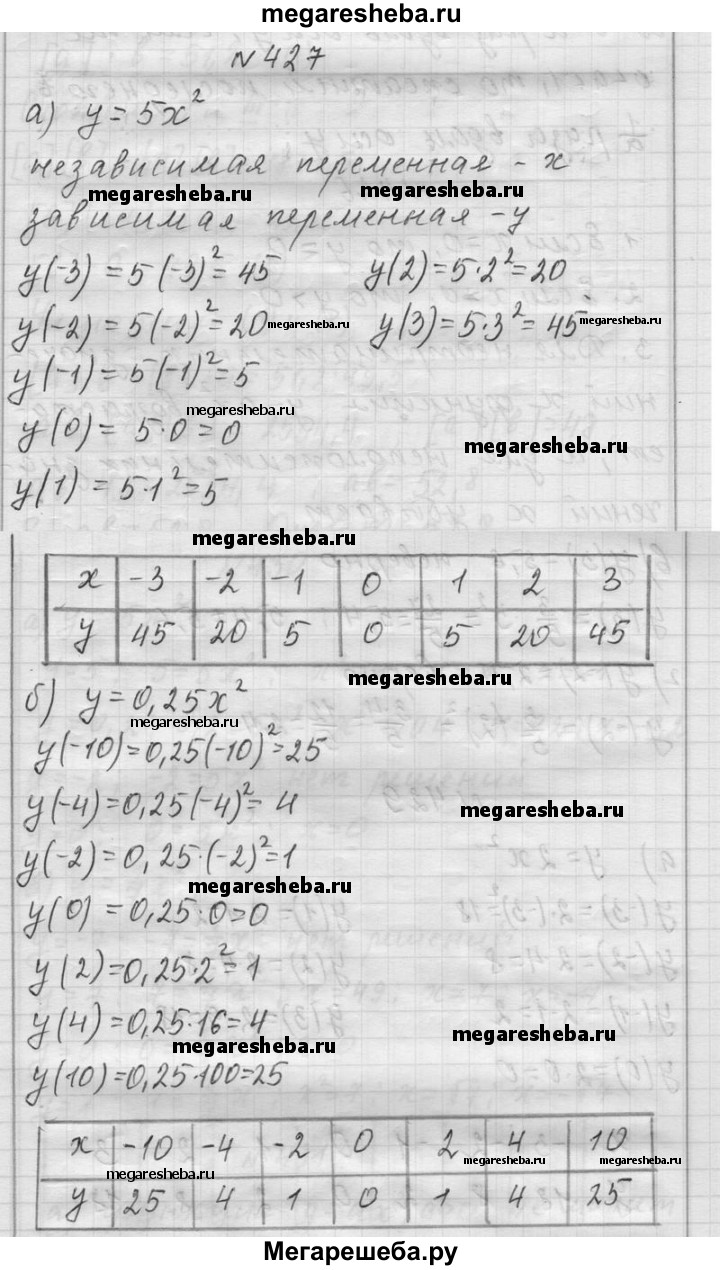 megaresheba.ru
N 427
а) y = 5x²
независимая переменная - x
megaresheba.ru megaresheba.ru
зависимая переменная - y
y(-3) = 5(-3)² = 45 y(2) = 5·2² = 20
y(-2) = 5(-2)² = 20 megaresheba.ru y(3) = 5·3² = 45 megaresheba.ru
y(-1) = 5(-1)² = 5
megaresheba.ru
y(0) = 5·0 = 0
megaresheba.ru
y(1) = 5·1² = 5
megaresheba.ru
x -3 -2 -1 0 1 2 3
y 45 20 5 0 5 20 45
megaresheba.ru
б) y = 0,25x²
megaresheba.ru
y(-10) = 0,25(-10)² = 25
y(-4) = 0,25(-4)² = 4
megaresheba.ru
y(-2) = 0,25·(-2)² = 1
megaresheba.ru
y(0) = 0,25·0 = 0
y(2) = 0,25·2² = 1
y(4) = 0,25·16 = 4
megaresheba.ru megaresheba.ru
y(10) = 0,25·100 = 25
x -10 -4 -2 0 2 4 10
megaresheba.ru megaresheba.ru megaresheba.ru
y 25 4 1 0 1 4 25
Мегарешеба.ру